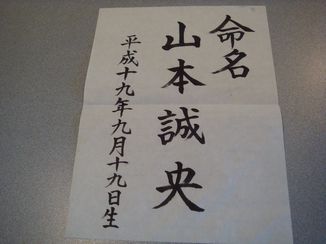 命名
山本誠央
平成十九年九月十九日生